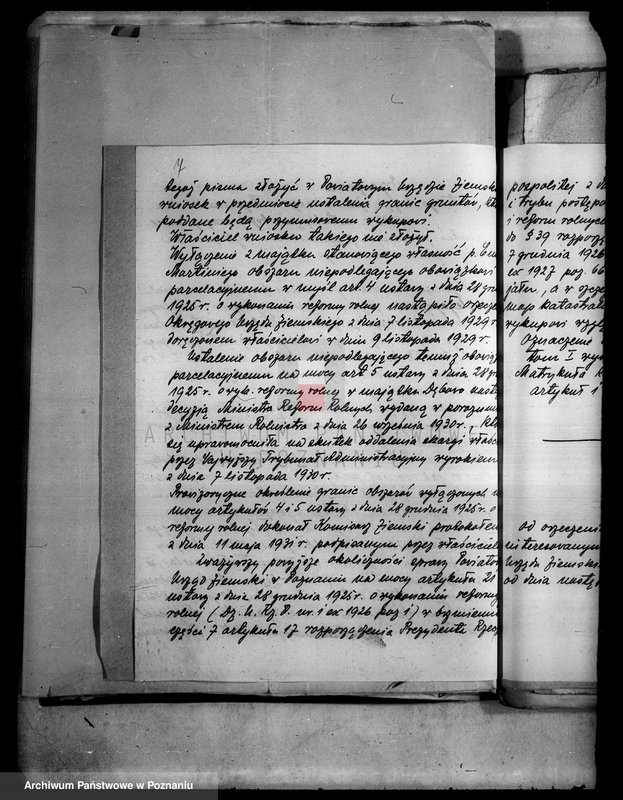 7
tegoż pisma złożyć w Powiatowym Urzędzie Ziemsk
wniosek w przedmiocie ustalenia granic gruntów, któ
poddane będą przymusowemu wykupowi.
Właściciel wniosku takiego nie złożył.
Wyłączenie z majątku stanowiącego własność p.
Martiniego obszaru niepodlegającego obowiązkowi
parcelacyjnemu w myśl art. 4 ustawy z dnia 28 gru
1925 r. o wykonaniu reformy rolnej nastąpiło orzecze
Okręgowego Urzędu Ziemskiego z dnia 7 listopada 1929 r
doręczonem właścicielowi w dniu 9 listopada 1929 r.
Ustalenie obszaru niepodlegającego temuż obowią
parcelacyjnemu na mocy art 5 ustawy z dnia 28 gr
1925 r. o wyk. reformy rolnej w majątku Dąbrowo nastą
decyzją Ministra Reform Rolnych, wydaną w porozum
z Ministrem Rolnictwa z dnia 26 września 1930 r., któ
się uprawomocniła na skutek oddalenia skargi właśc
przez Najwyższy Trybunał Administracyjny wyrokiem
z dnia 7 listopada 1930 r.
Prowizoryczne określenie granic obszarów wyłączonych n
mocy artykułów 4 i 5 ustawy z dnia 28 grudnia 1925 r. o
reformy rolnej dokonał Komisarz Ziemski protokołem
z dnia 11 maja 1931 r. podpisanym przez właściciela
Zważywszy powyższe okoliczności sprawy Powiatow
Urząd Ziemski w Poznaniu na mocy artykułu 21
ustawy z dnia 28 grudnia 1925 r. o wykonaniu reformy
rolnej (Dz. U. Rz. P. nr. 1 ex 1926 poz 1) w brzmieniu
części 7 artykułu 17 rozporządzenia Prezydenta Rzecz
pospolitej z d
i trybu postępo
i reform rolnych
do § 39 rozporz
7 grudnia 1926
ex 1927 poz. 66
Oznaczenie
tom I wy
Matrykuła
artykuł 1
od orzeczenia
interesowanym
Urzędu Ziemsk
od dnia nastę
Archiwum Państwowe w Poznaniu